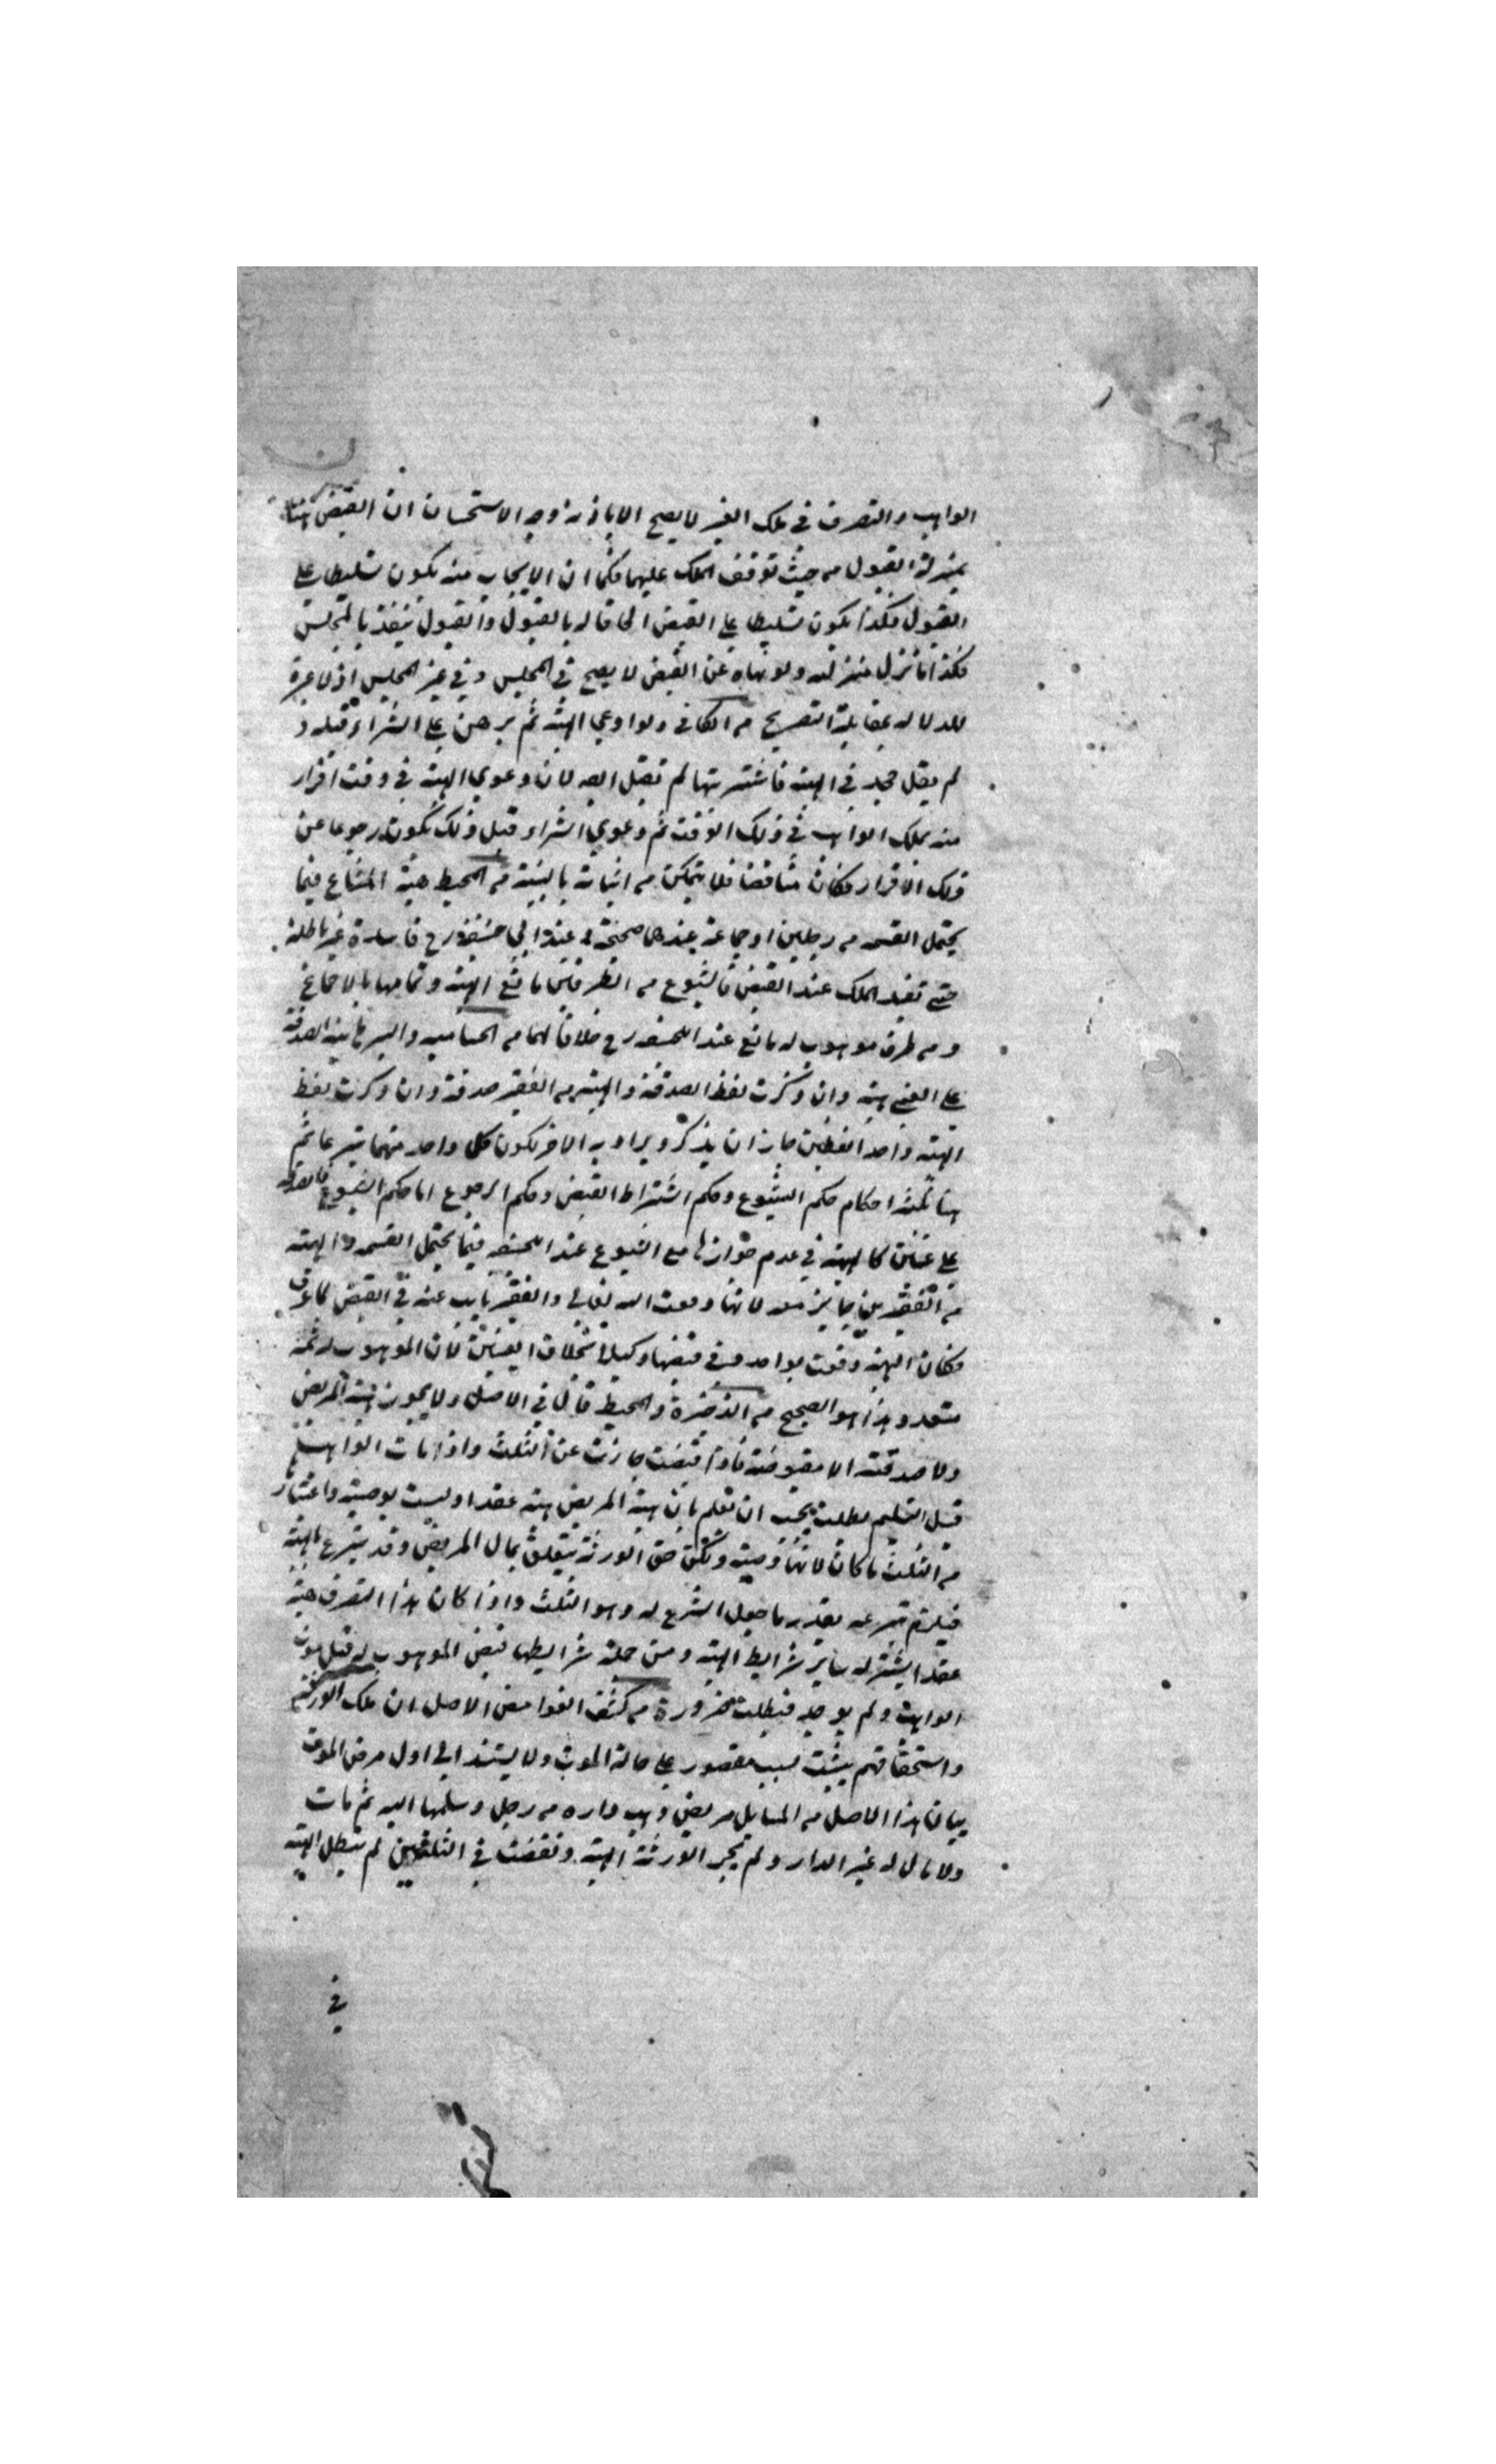 الواهب والتصرف في ملك الغير لا يصح الا باذنه وجه الاستحسان ان القبض هنا
بمنزلة القبول من حيث توقف الملك عليهما فكما ان الايجاب منه يكون تسليطا على
القبول فكذا يكون تسليطا على القبض الحاقا له بالقبول والقبول يتقيد بالمجلس
فكذا ما نزل منزلته ولو نهاه عن القبض لا يصح في المجلس وفي غير المجلس اذ لا عبرة
للدلالة بمقابلة التصريح من الكافي ولو ادعى الهبة ثم برهن على الشراء قبله و
لم يقل جحدني الهبة فاشتريتها لم تقبل لان دعوى الهبة في وقت اقرار
منه بملك الواهب في ذلك الوقت ثم دعوى الشراء قبل ذلك يكون رجوعا عن
ذلك الاقرار فكان مناقضا فلا يتمكن من اثباته بالبينة من المحيط هبة المشاع فيما
يحتمل القسمة من رجلين او جماعة عندهما صحيحة وعند ابي حنيفة رح فاسدة غير باطلة
حتى تفيد الملك عند القبض فالشيوع من الطرفين مانع الهبة وتمامها بالاجماع
ومن طرف موهوب له مانع عند ابي حنيفة رح خلافا لهما من الصدقة
على الغني هبة وان ذكرت لفظ الصدقة والهبة من الفقير صدقة وان ذكرت لفظ
الهبة واحد اللفظين جاز ان يذكر ويراد به الاخر لكون كل واحد منهما تبرعا ثم
هنا ثلثة احكام حكم الشيوع وحكم اشتراط القبض وحكم الرجوع اما حكم الشيوع فالصدقة
على غنيين كالهبة في عدم جوازها مع الشيوع عند ابي حنيفة فيما يحتمل القسمة والهبة
من الفقيرين جايز معه لانها وقعت لله تعالى والفقير نايب عنه في القبض كما عرف
فكان الهبة وقعت لواحد وفي قبضها وكيلا بخلاف الغنيين لان الموهوب له ثمه
متعدد وهذا هو الصحيح من الذخيرة والمحيط قال في الاصل ولا يجوز هبة المريض
ولا صدقته الا مقبوضة فاذا قبضت جازت عن الثلث واذا مات الواهب
قبل التسليم بطلت يجب ان تعلم بان هبة المريض هبة عقدا وليست بوصية واعتبار
من الثلث ما كان لانها وصية ولكن حق الورثة يتعلق بمال المريض وقد تبرع بالهبة
فيلزم تبرعه بقدر ما جعل الشرع له وهو الثلث واذا كان هذا التصرف هبة
عقدا يشترط له ساير شرايط الهبة ومن جملة شرايطها قبض الموهوب له قبل موت
الواهب ولم يوجد فبطلت ضرورة من كشف الغوامض الاصل ان ملك الورثة
واستحقاقهم يثبت بسبب مقصور على حالة الموت ولا يستند الى اول مرض الموت
بيان هذا الاصل من المسايل مريض وهب داره من رجل وسلمها اليه ثم مات
ولا مال له غير الدار ولم تجز الورثة الهبة ونقضت في الثلثين لم تبطل الهبة
في